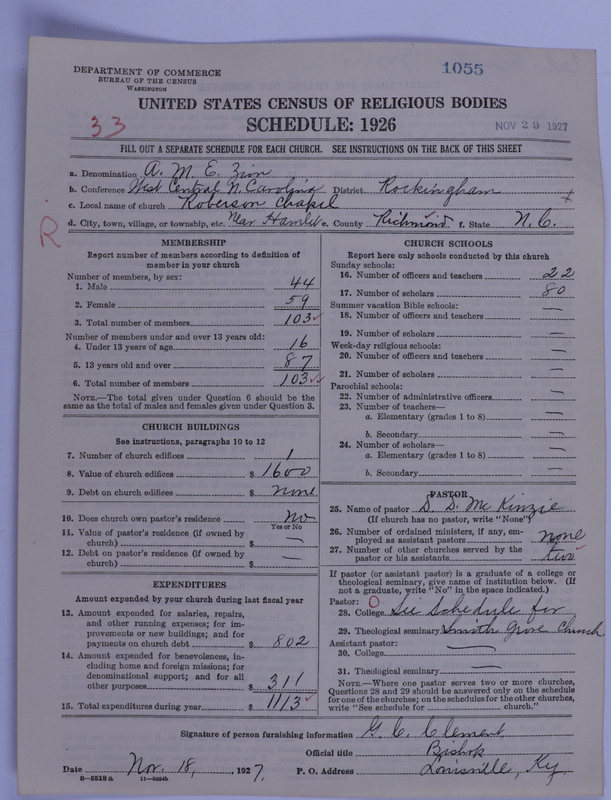 1055
DEPARTMENT OF COMMERCE
BUREAU OF THE CENSUS
WASHINGTON
UNITED STATES CENSUS OF RELIGIOUS BODIES
33
SCHEDULE: 1926
NOV 29 1927
FILL OUT A SEPARATE SCHEDULE FOR EACH CHURCH. SEE INSTRUCTIONS ON THE BACK OF THIS SHEET
a. Denomination A. M. E. Zion
b. Conference West Central N. Carolina District Rockingham
c. Local name of church Roberson Chapel
d. City, town, village, or township, etc. Near Hamlet e. County Richmond f. State N. C.
R
MEMBERSHIP
Report number of members according to definition of
member in your church
Number of members, by sex:
1. Male 44
2. Female 59
3. Total number of members 103
Number of members under and over 13 years old:
4. Under 13 years of age 16
5. 13 years old and over 87
6. Total number of members 103
NOTE.—The total given under Question 6 should be the
same as the total of males and females given under Question 3.
CHURCH BUILDINGS
See instructions, paragraphs 10 to 12
7. Number of church edifices 1
8. Value of church edifices $ 1600
9. Debt on church edifices $ none
10. Does church own pastor's residence No
Yes or No
11. Value of pastor's residence (if owned by
church) $ —
12. Debt on pastor's residence (if owned by
church) $ —
EXPENDITURES
Amount expended by your church during last fiscal year
13. Amount expended for salaries, repairs,
and other running expenses; for im-
provements or new buildings; and for
payments on church debt $ 802
14. Amount expended for benevolences, in-
cluding home and foreign missions; for
denominational support; and for all
other purposes $ 311
15. Total expenditures during year $ 1113
CHURCH SCHOOLS
Report here only schools conducted by this church
Sunday schools:
16. Number of officers and teachers 22
17. Number of scholars 80
Summer vacation Bible schools:
18. Number of officers and teachers —
19. Number of scholars —
Week-day religious schools:
20. Number of officers and teachers —
21. Number of scholars —
Parochial schools:
22. Number of administrative officers —
23. Number of teachers—
a. Elementary (grades 1 to 8) —
b. Secondary —
24. Number of scholars—
a. Elementary (grades 1 to 8) —
b. Secondary —
PASTOR
25. Name of pastor D. D. McKinzie
(If church has no pastor, write "None")
26. Number of ordained ministers, if any, em-
ployed as assistant pastors none
27. Number of other churches served by the
pastor or his assistants two
If pastor (or assistant pastor) is a graduate of a college or
theological seminary, give name of institution below. (If
not a graduate, write "No" in the space indicated.)
Pastor:
28. College See Schedule for
29. Theological seminary Smith Grove Church
Assistant pastor:
30. College —
31. Theological seminary —
NOTE.—Where one pastor serves two or more churches,
Questions 28 and 29 should be answered only on the schedule
for one of the churches; on the schedules for the other churches,
write "See schedule for church."
Signature of person furnishing information G. C. Clement
Official title Bishop
Date Nov. 18, 1927. P. O. Address Louisville, Ky.